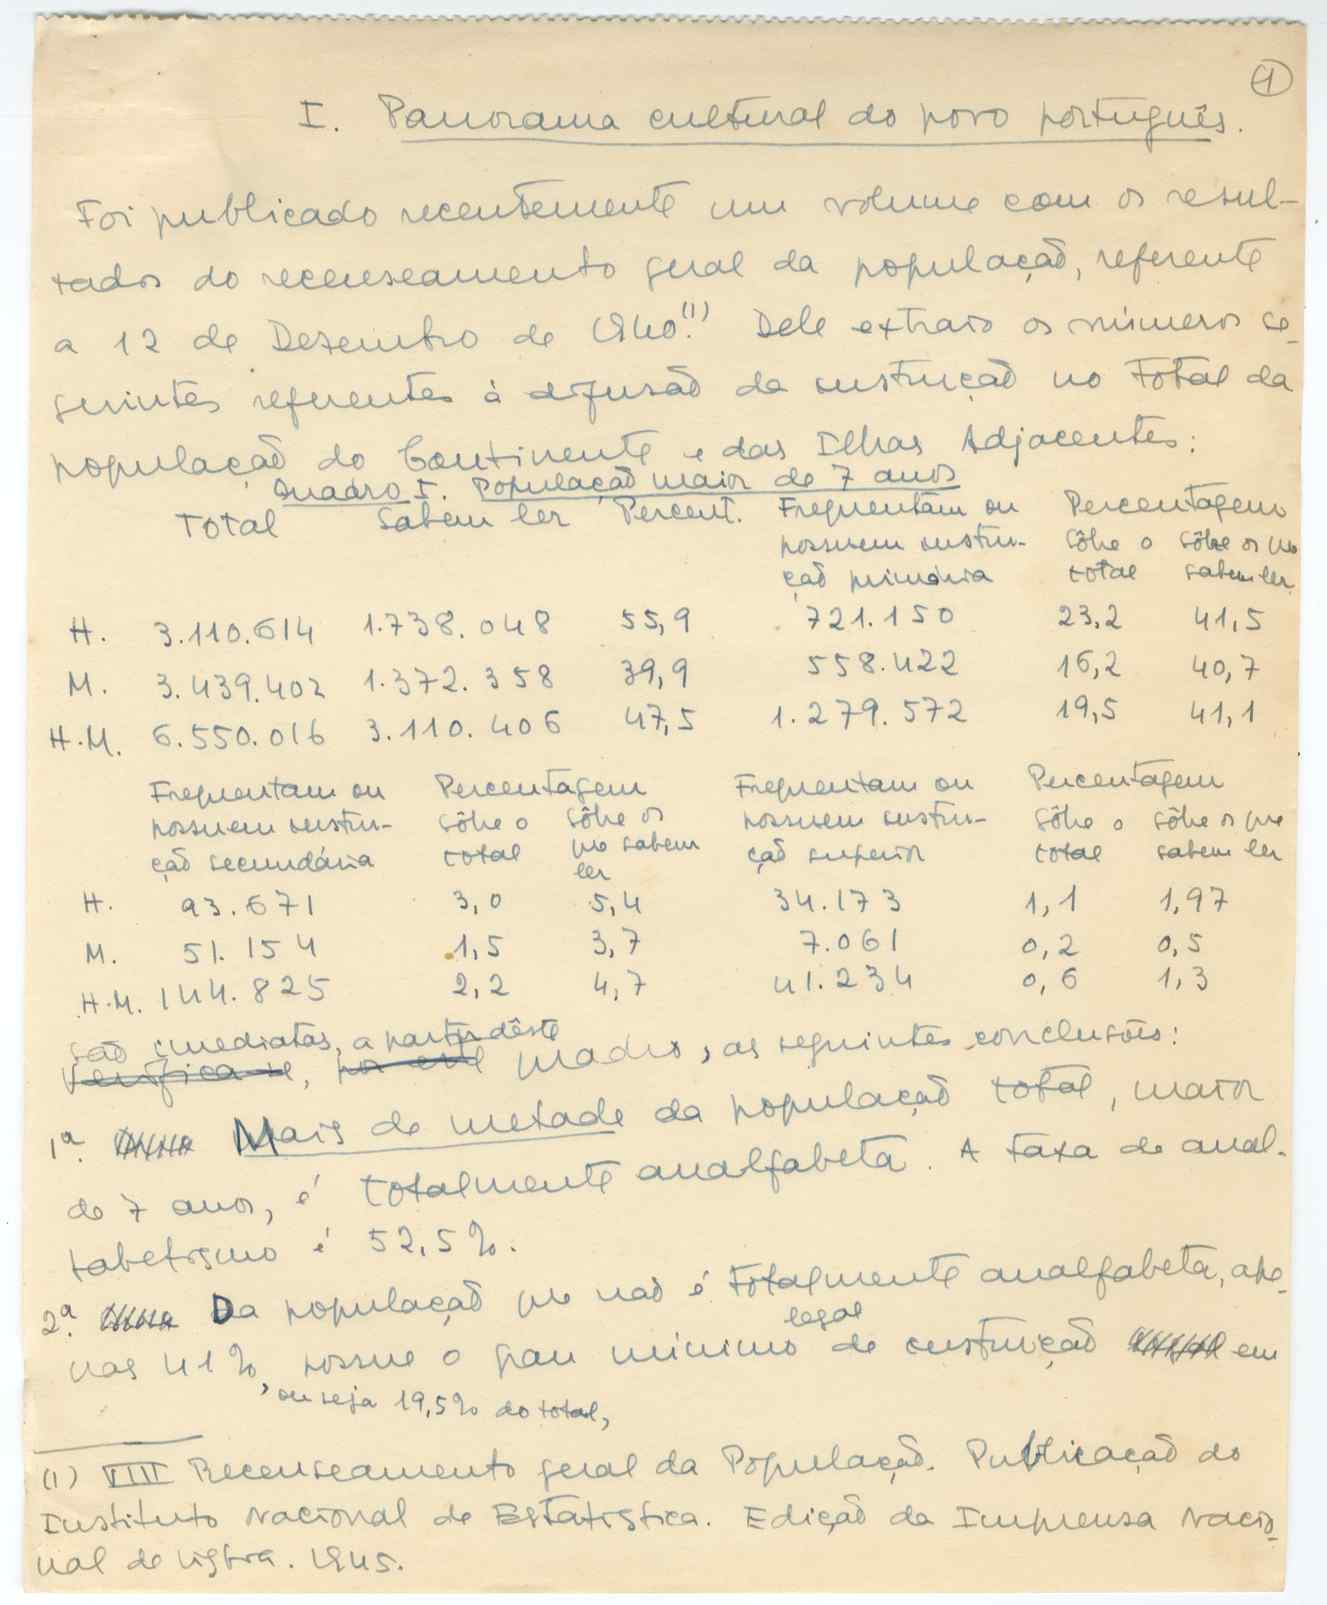 1
I. Panorama cultural do povo português.
Foi publicado recentemente um volume com os resul-
tados do recenseamento geral da população, referente
a 12 de Dezembro de 1940.(1) Dele extraio os números se-
guintes referentes à difusão da instrução no total da
população do Continente e das Ilhas Adjacentes:
Quadro I. População maior de 7 anos
Total Sabem ler Percent. Frequentam ou Percentagem
possuem instru- sôbre o sôbre os que
ção primária total sabem ler
H. 3.110.614 1.738.048 55,9 721.150 23,2 41,5
M. 3.439.402 1.372.358 39,9 558.422 16,2 40,7
H.M. 6.550.016 3.110.406 47,5 1.279.572 19,5 41,1
Frequentam ou Percentagem Frequentam ou Percentagem
possuem instru- sôbre o sôbre os possuem instru- sôbre o sôbre os que
ção secundária total que sabem ção superior total sabem ler
ler
H. 93.671 3,0 5,4 34.173 1,1 1,97
M. 51.154 1,5 3,7 7.061 0,2 0,5
H.M. 144.825 2,2 4,7 41.234 0,6 1,3
São imediatas, a partir dêste
Verifica-se, por este quadro, as seguintes conclusões:
1ª. Mais de metade da população total, maior
de 7 anos, é totalmente analfabeta. A taxa de anal-
fabetismo é 52,5%.
2ª. Da população que não é totalmente analfabeta, ape-
legal
nas 41% possue o grau mínimo de instrução em
, ou seja 19,5% do total,
(1) VIII Recenseamento geral da População. Publicação do
Instituto Nacional de Estatística. Edição da Imprensa Nacio-
nal de Lisboa. 1945.